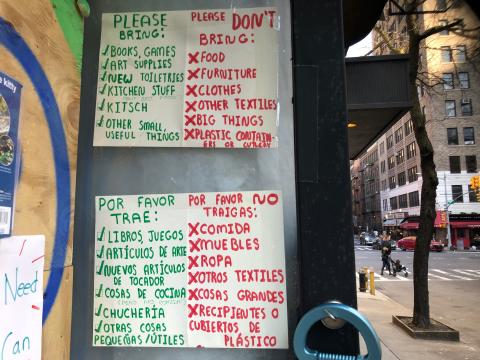 PLEASE
BRING:
✓BOOKS, GAMES
✓ART SUPPLIES
✓NEW TOILETRIES
✓KITCHEN STUFF
✓KITSCH
✓OTHER SMALL,
USEFUL THINGS
PLEASE DON'T
BRING:
XFOOD
XFURNITURE
XCLOTHES
XOTHER TEXTILES
XBIG THINGS
XPLASTIC CONTAIN-
ERS OR CUTLERY
POR FAVOR
TRAE:
✓LIBROS, JUEGOS
✓ARTÍCULOS DE ARTE
✓NUEVOS ARTÍCULOS
DE TOCADOR
✓COSAS DE COCINA
✓CHUCHERÍA
✓OTRAS COSAS
PEQUEÑAS/ÚTILES
POR FAVOR NO
TRAIGAS:
XCOMIDA
XMUEBLES
XROPA
XOTROS TEXTILES
XCOSAS GRANDES
XRECIPIENTES O
CUBIERTOS DE
PLÁSTICO
Need
Can